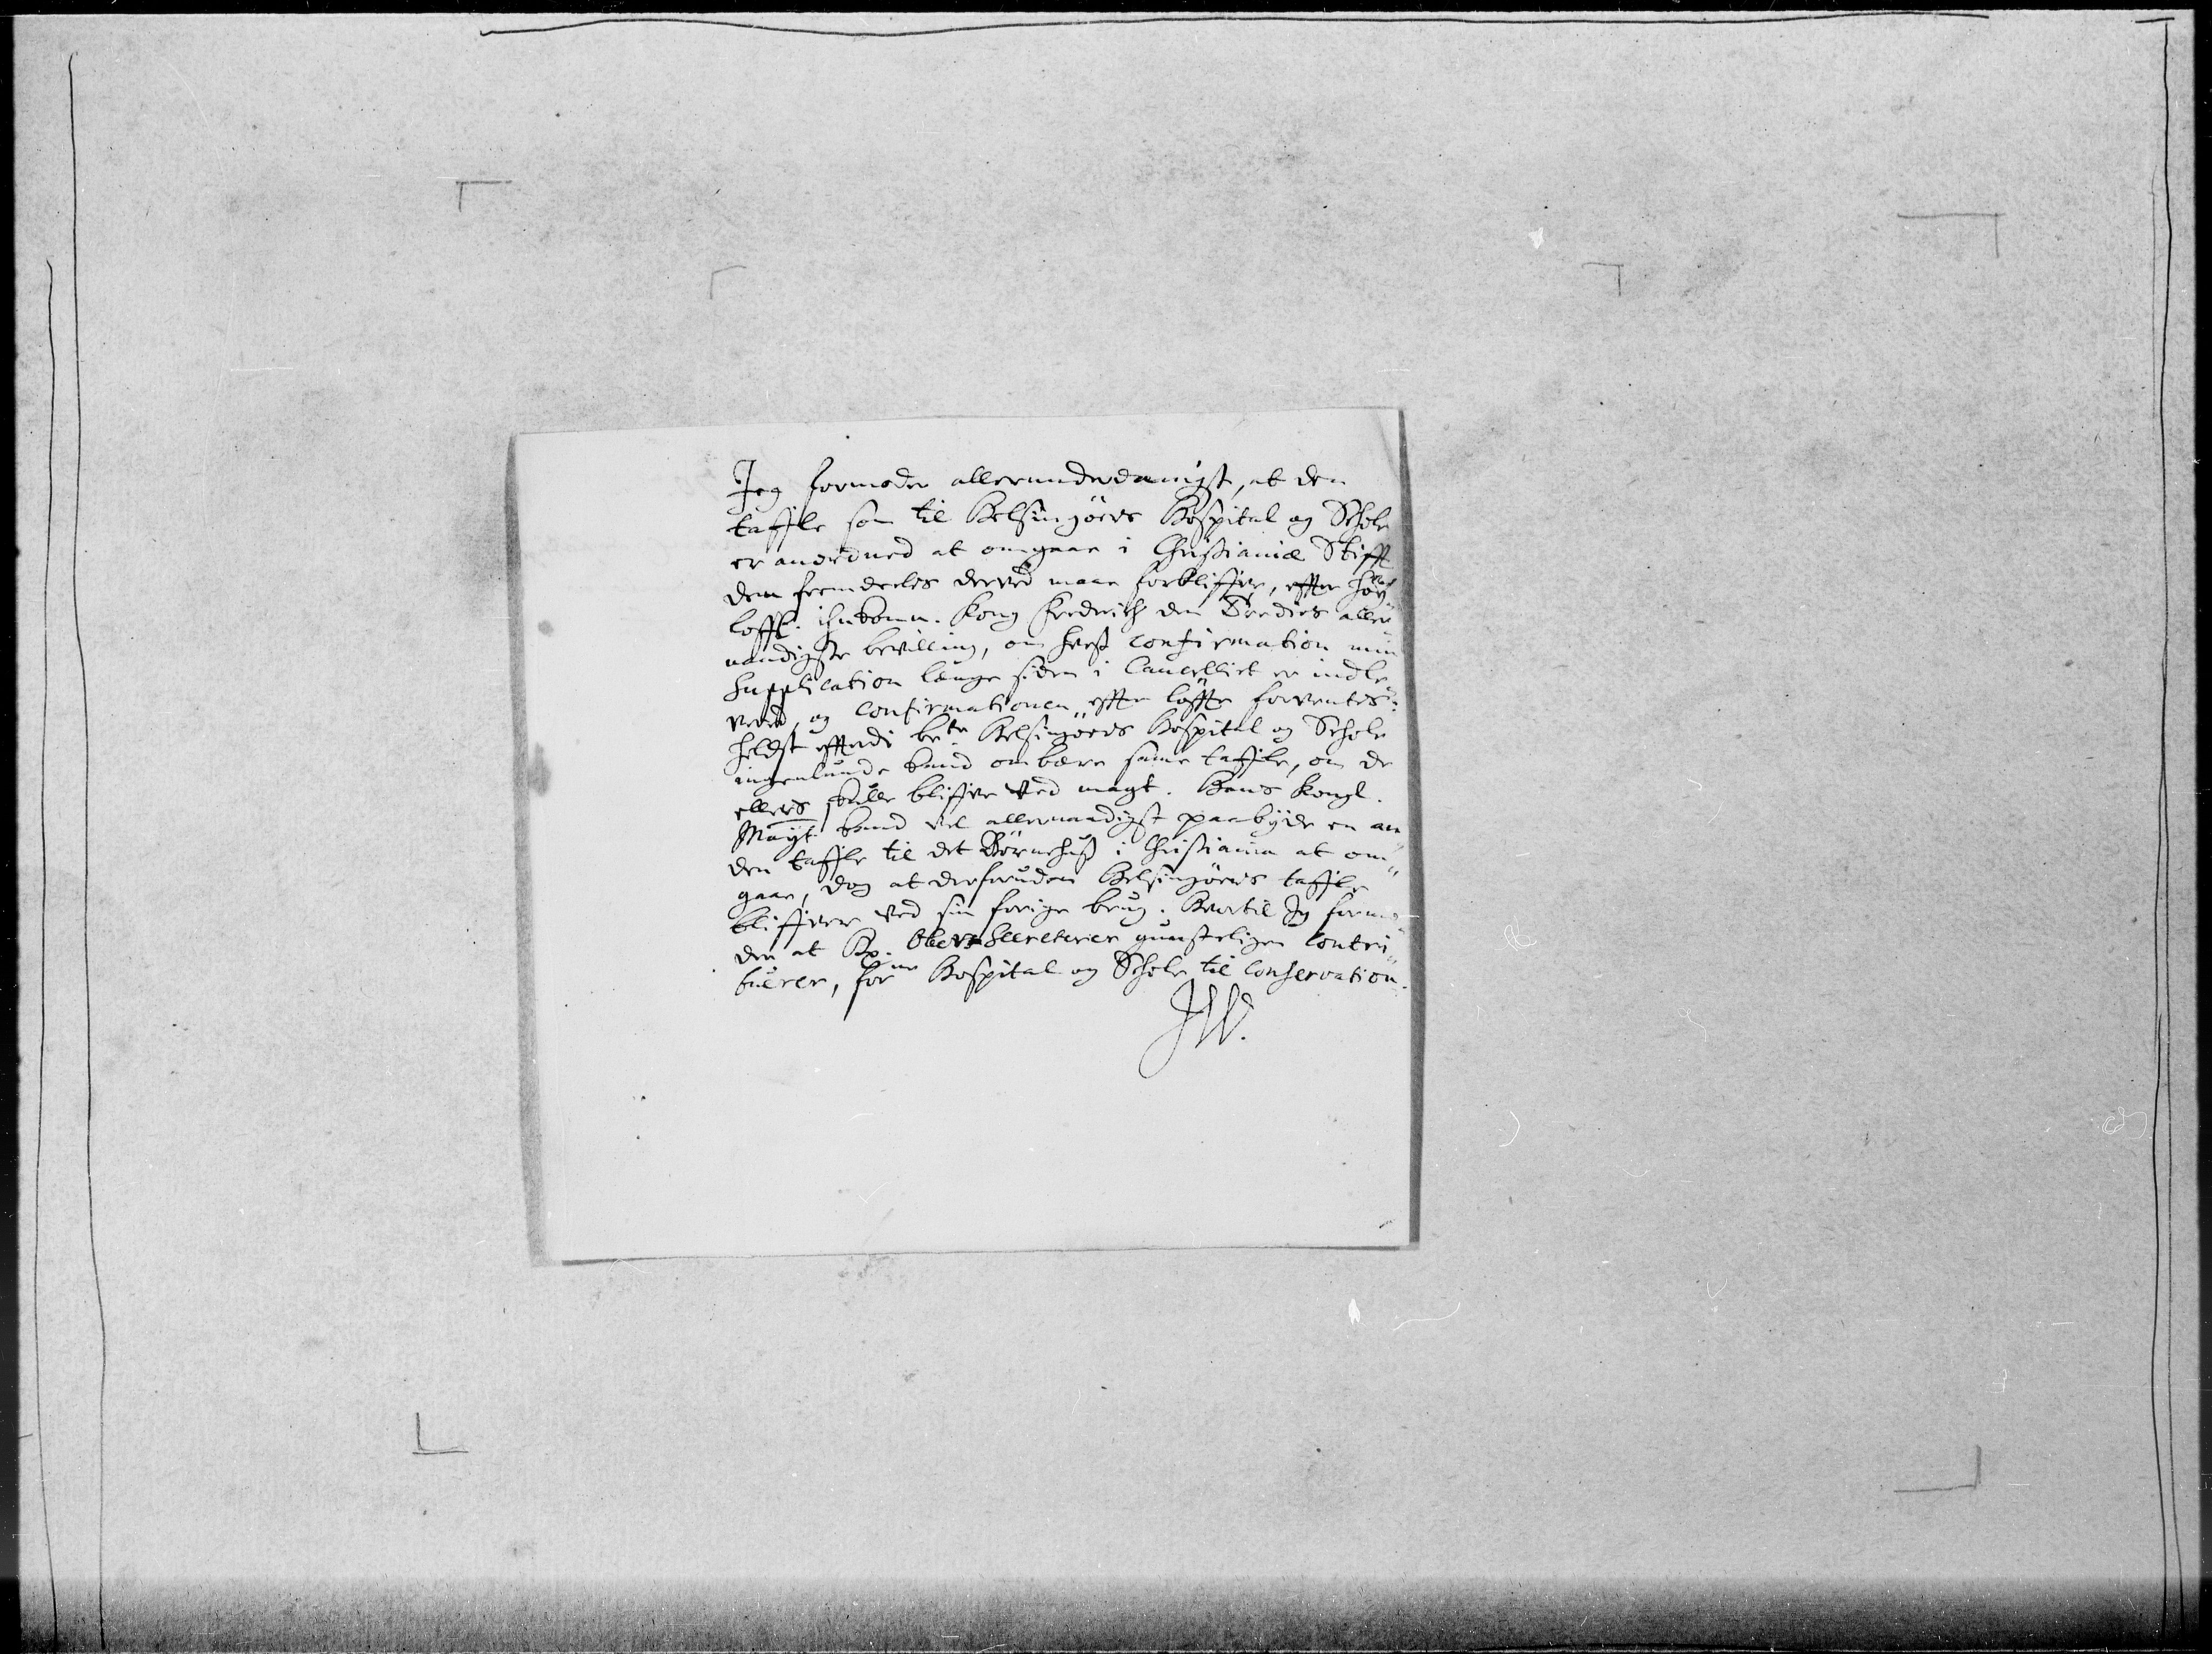 Jeg formoder allerunderdanigst, at den
taffle som til Helsingøers Hospital og Schole
er anordned at omgaae i Christianiæ Stifft
dem fremdeeles derved maae forbliffve, effter Høy
lofft. ihukomm. Kong Frederich den Tredies aller
naadigste bevilling, om hvess confirmation min
supplication længe siden i Cancelliet er indle
vered, og confirmationen effter løffte forventes:
Heldst efftterdi bete Helsingøers Hospital og Schole
ingenlunde kand ombære samme taffle, om de
ellers skulle bliffve ved magt. Hans Kongl.
Mayt. kand vel allernaadigst paabyde en an
den taffle til det Børnehuss i Christiania at om
gaae, dog at derforuden Helsingøers taffle
bliffver ved sin forige brug. Hvortil Jeg formo
der at Hr. Ober Secreterer gunsteligen contri
buerer, forne Hospital og Schole til conservation.
JW.